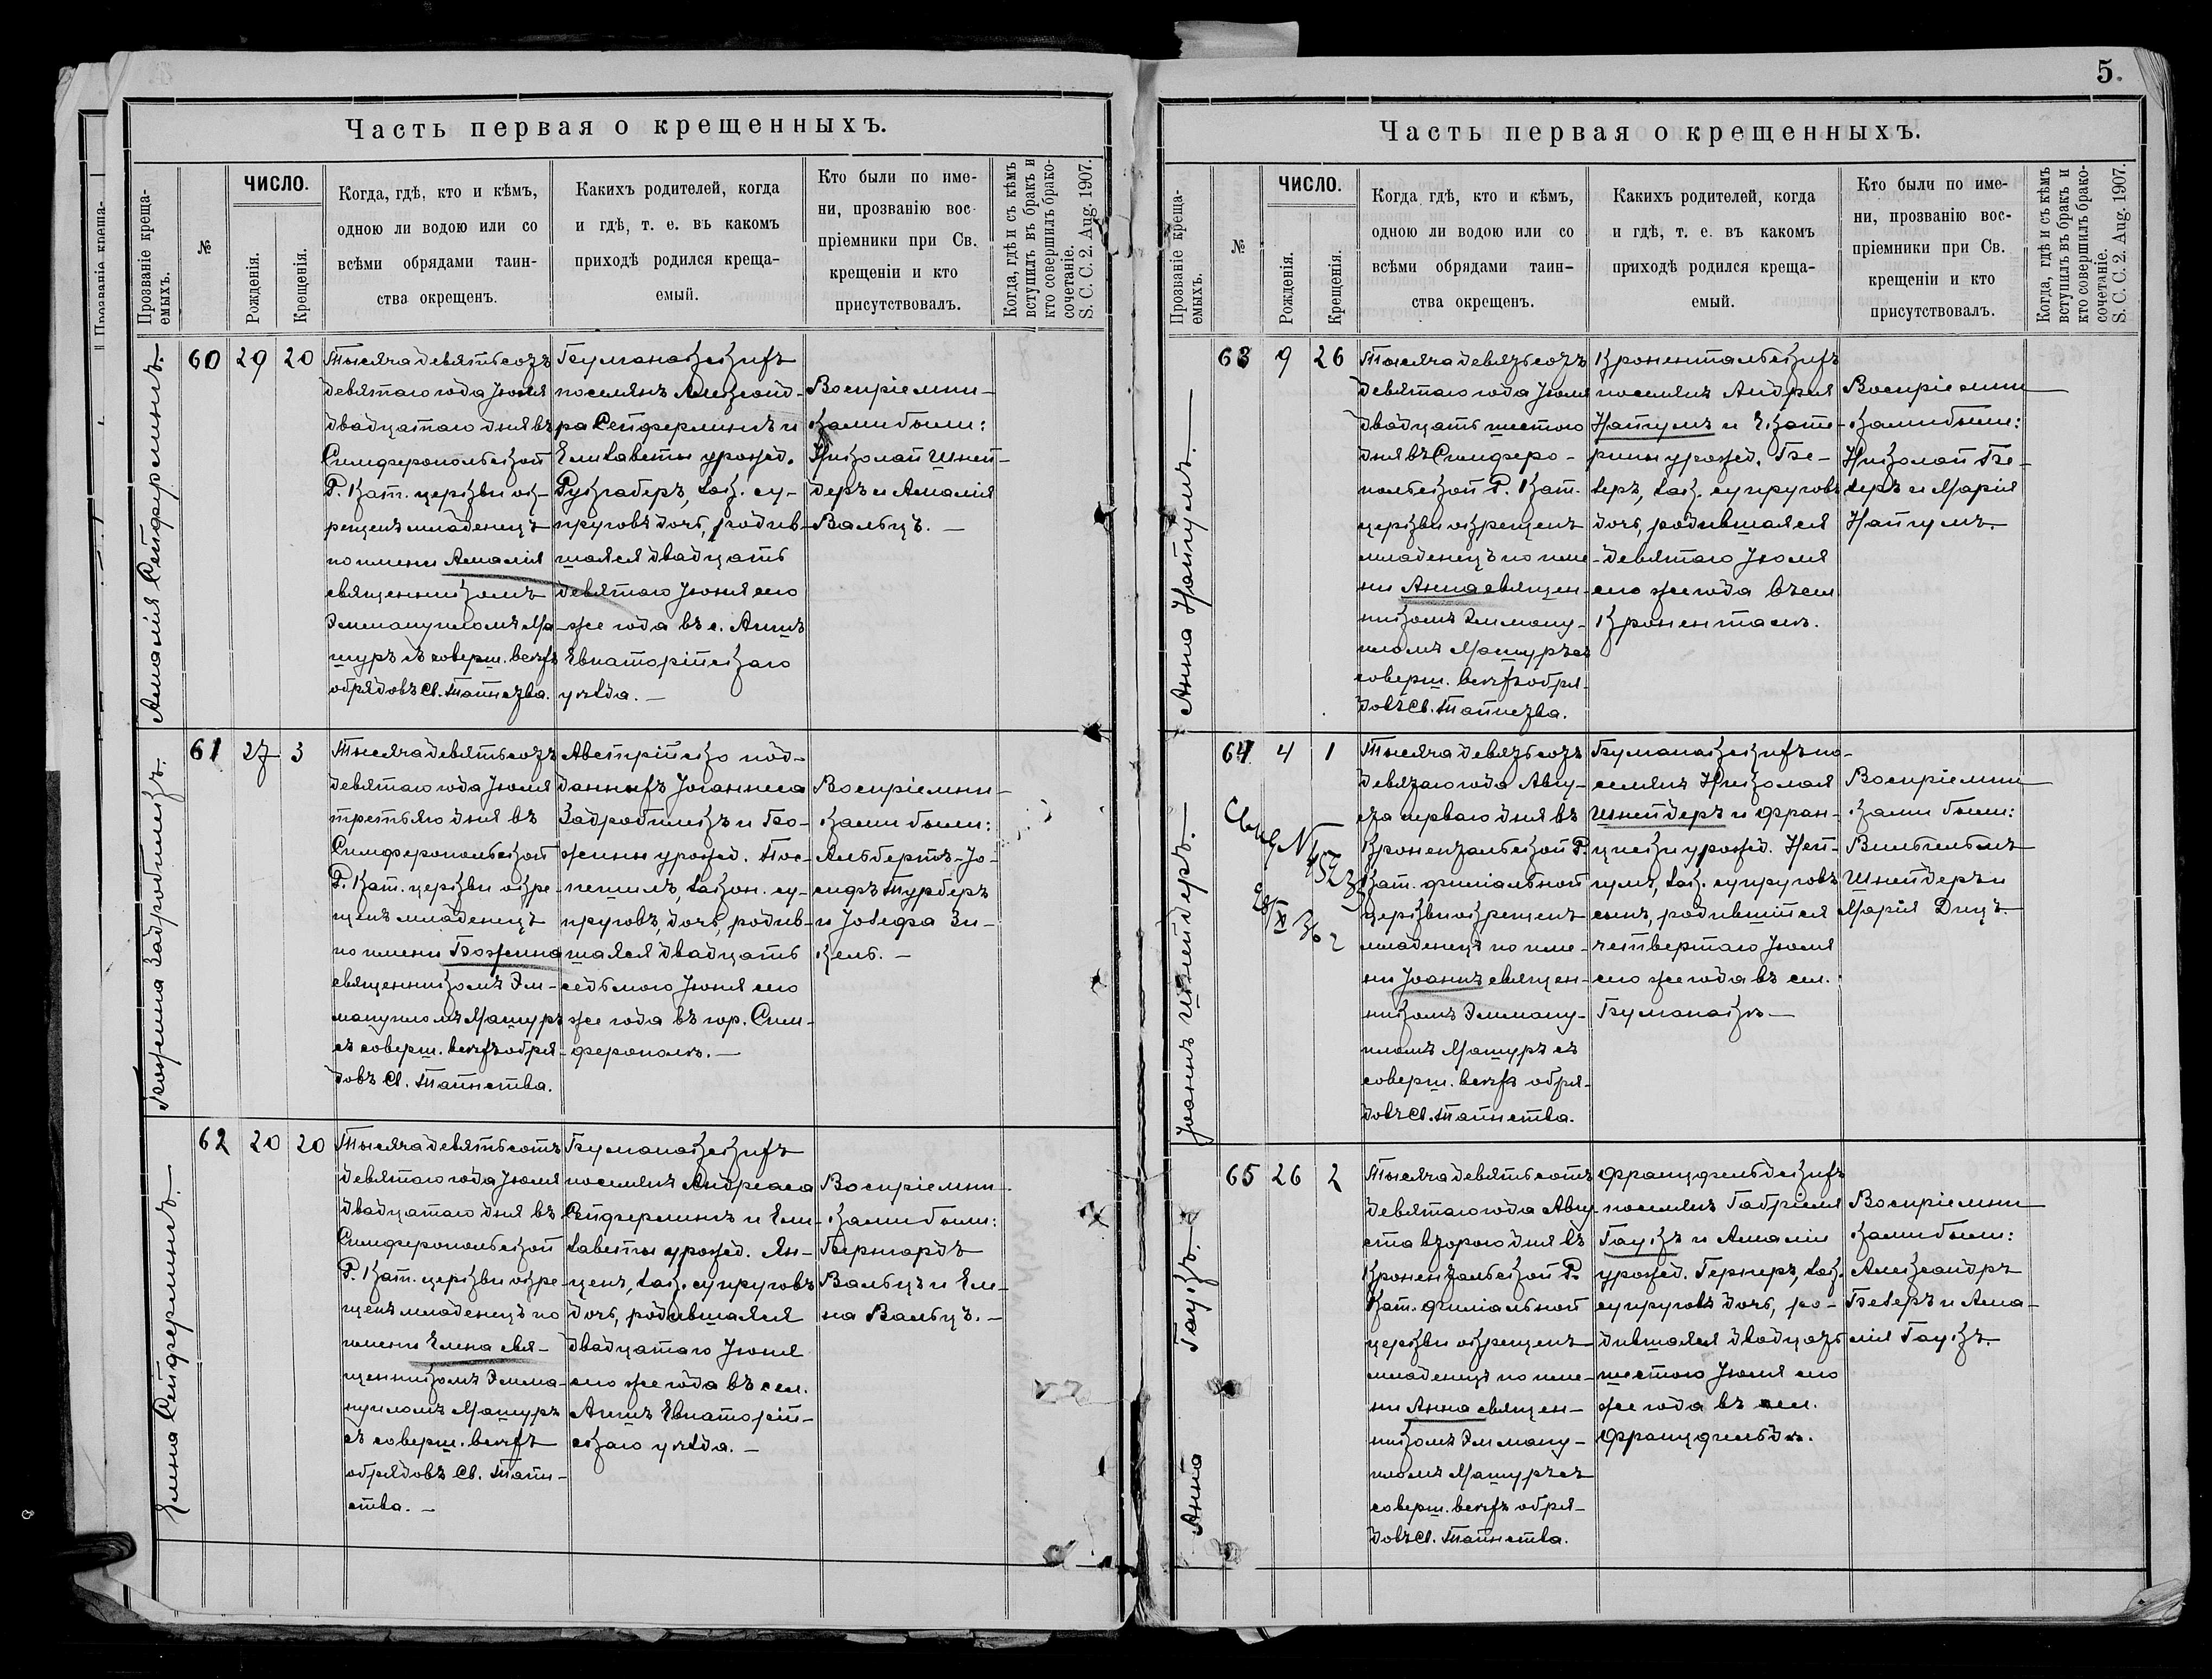 Часть первая о крещенныхъ.
Прозваніе креща-
емыхъ.
№
ЧИСЛО.
Рожденія.
Крещенія.
Когда, гдѣ, кто и кѣмъ,
одною ли водою или со
всѣми обрядами таин-
ства окрещенъ.
Какихъ родителей, когда
и гдѣ, т. е. въ какомъ
приходѣ родился креща-
емый.
Кто были по име-
ни, прозванію вос-
пріемники при Св.
крещеніи и кто
присутствовалъ.
Когда, гдѣ и съ кѣмъ
вступилъ въ бракъ и
кто совершилъ брако-
сочетаніе.
S. C. C. 2. Aug. 1907.
Амалія Сейферлингъ.
60
29
20
Тысяча девятьсотъ
девятаго года Іюля
двадцатаго дня въ
Симферопольской
Р. Кат. церкви ок-
рещенъ младенецъ
по имени Амалія
священникомъ
Эммануиломъ Ма-
шуръ съ соверш. всѣхъ
обрядовъ Св. Таинства.
поселянъ Александ-
ра Сейферлингъ и
Елизаветы урожд.
Рукгаберъ, зак. су-
пруговъ дочь, родив-
шаяся двадцать
девятаго Іюня сего
же года въ с. Агишъ
Евпаторійскаго
уѣзда. —
Воспріемни-
ками были:
Николай Шней-
деръ и Амалія
Вальцъ. —
Божена Задробилекъ.
61
27
3
Тысяча девятьсотъ
девятаго года Іюля
третьяго дня въ
Симферопольской
Р. Кат. церкви окре-
щенъ младенецъ
по имени Божена
священникомъ Эм-
мануиломъ Машуръ
съ соверш. всѣхъ обря-
довъ Св. Таинства.
Австрійско под-
данныхъ Іоганнеса
Задробилекъ и Бо-
жены урожд. Пос-
пешилъ, закон. су-
пруговъ, дочь, родив-
шаяся двадцать
седьмого Іюня сего
же года въ гор. Сим-
ферополѣ. —
Воспріемни-
ками были:
Альбертъ-Іо-
сифъ Турберъ
и Іозефа Зи-
кель. —
Елена Сейферлингъ.
62
20
20
Тысяча девятьсотъ
девятаго года Іюля
двадцатаго дня въ
Симферопольской
Р. Кат. церкви окре-
щенъ младенецъ по
имени Елена свя-
щенникомъ Эмма-
нуиломъ Машуръ
съ соверш. всѣхъ
обрядовъ Св. Таин-
ства. —
поселянъ Андреаса
Сейферлингъ и Ели-
заветы урожд. Ян-
ценъ, зак. супруговъ
дочь, родившаяся
двадцатаго Іюня
сего же года въ сел.
Агишъ Евпаторій-
скаго уѣзда. —
Воспріемни-
ками были:
Бернардъ
Вальцъ и Еле-
на Вальцъ. —
5.
Часть первая о крещенныхъ.
Прозваніе креща-
емыхъ.
№
ЧИСЛО.
Рожденія.
Крещенія.
Когда гдѣ, кто и кѣмъ,
одною ли водою или со
всѣми обрядами таин-
ства окрещенъ.
Какихъ родителей, когда
и гдѣ, т. е. въ какомъ
приходѣ родился креща-
емый.
Кто были по име-
ни, прозванію вос-
пріемники при Св.
крещеніи и кто
присутствовалъ.
Когда, гдѣ и съ кѣмъ
вступилъ въ бракъ и
кто совершилъ брако-
сочетаніе.
S. C. C. 2. Aug. 1907.
Анна Найгумъ.
63
9
26
Тысяча девятьсотъ
девятаго года Іюля
двадцать шестого
дня въ Симферо-
польской Р. Кат.
церкви окрещенъ
младенецъ по име-
ни Анна священ-
никомъ Эмману-
иломъ Машуръ съ
соверш. всѣхъ обря-
довъ Св. Таинства.
Кронентальскихъ
поселянъ Андрея
Найгумъ и Екате-
рины урожд. Бе-
зеръ, зак. супруговъ
дочь, родившаяся
девятаго Іюля
сего же года въ сел.
Кроненталь.
Воспріемни-
ками были:
Николай Бе-
зеръ и Марія
Найгумъ.
Іоаннъ Шнейдеръ.
64
4
1
Тысяча девятьсотъ
девятаго года Авгу-
ста перваго дня въ
Кронентальской Р.
Кат. филіальной
церкви окрещенъ
младенецъ по име-
ни Іоаннъ священ-
никомъ Эмману-
иломъ Машуръ съ
соверш. всѣхъ обря-
довъ Св. Таинства.
селянъ Николая
Шнейдеръ и Фран-
циски урожд. Ней-
гумъ, зак. супруговъ
сынъ, родившійся
четвертаго Іюля
сего же года въ сел.
Воспріемни-
ками были:
Вильгельмъ
Шнейдеръ и
Марія Дицъ.
Анна Гаукъ.
65
26
2
Тысяча девятьсотъ
девятаго года Авгу-
ста второго дня въ
Кронентальской Р.
Кат. филіальной
церкви окрещенъ
младенецъ по име-
ни Анна священ-
никомъ Эмману-
иломъ Машуръ съ
соверш. всѣхъ обря-
довъ Св. Таинства.
Францфельдскихъ
поселянъ Габріеля
Гаукъ и Амаліи
урожд. Гернеръ, зак.
супруговъ дочь, ро-
дившаяся двадцать
шестого Іюля сего
же года въ сел.
Францфельдѣ.
Воспріемни-
ками были:
Александръ
Безеръ и Ама-
лія Гаукъ.